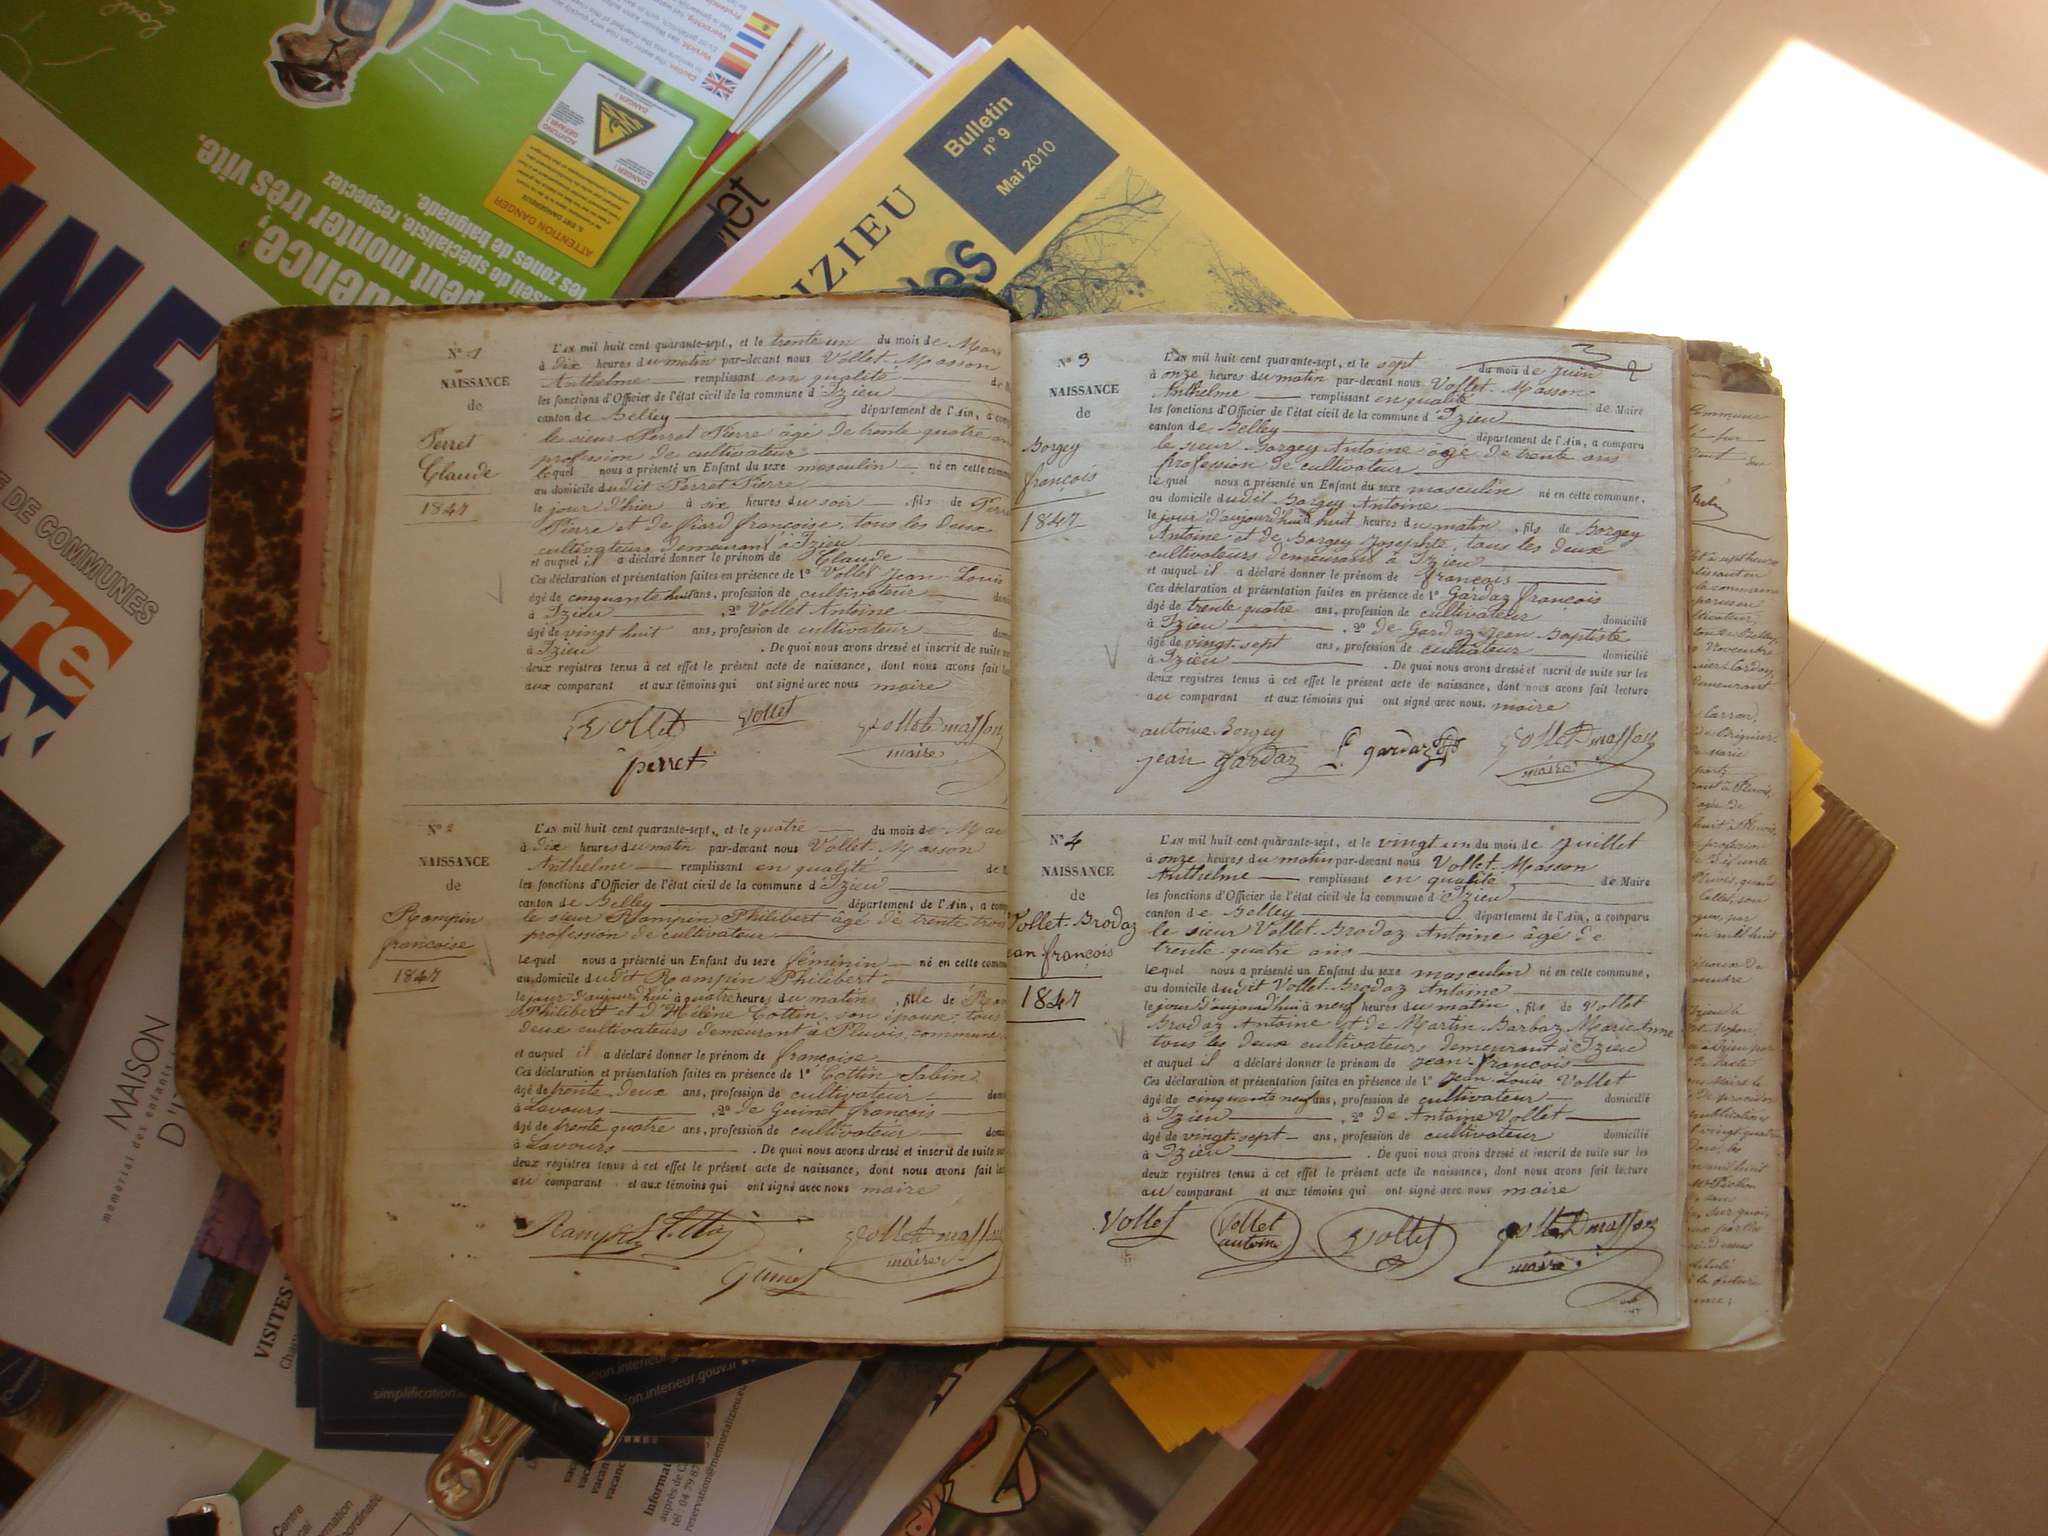 Bulletin
n° 9
Mai 2010
IZIEU
peut monter très vite.
conseil de spécialiste, respectez
les zones de baignade.
ATTENTION DANGER
INFO
DE COMMUNES
MAISON
D'I
memorial des enfants
VISITES
simplification.
interieur.gouv.fr
reservation@memorializieu.eu
N° 1
NAISSANCE
de
Perret
Claude
1847
L'AN mil huit cent quarante-sept, et le trente un du mois de Mars
à Dix heures du matin par-devant nous Vollet-Masson
Anthelme remplissant en qualité de
les fonctions d'Officier de l'état civil de la commune d'Izieu
canton de Belley département de l'Ain, a comp
le sieur Perret Pierre âgé de trente quatre an
profession de cultivateur
lequel nous a présenté un Enfant du sexe masculin né en cette comm
au domicile dudit Perret Pierre
le jour d'hier à six heures du soir, fils de Perre
Pierre et de Piard françoise, tous les deux
cultivateurs demeurant à Izieu
et auquel il a déclaré donner le prénom de Claude
Ces déclaration et présentation faites en présence de 1° Vollet Jean Louis
âgé de cinquante huit ans, profession de cultivateur domi
à Izieu, 2° Vollet Antoine
âgé de vingt huit ans, profession de cultivateur dom
à Izieu. De quoi nous avons dressé et inscrit de suite sur
deux registres tenus à cet effet le présent acte de naissance, dont nous avons fait lec
aux comparant et aux témoins qui ont signé avec nous maire
Vollet Vollet Vollet masson
maire
perret
N° 2
NAISSANCE
de
Rampin
françoise
1847
L'AN mil huit cent quarante-sept, et le quatre du mois de Mai
à Dix heures du matin par-devant nous Vollet-Masson
Anthelme remplissant en qualité de
les fonctions d'Officier de l'état civil de la commune d'Izieu
canton de Belley département de l'Ain, a comp
le sieur Rampin Philibert âgé de trente trois
profession de cultivateur
lequel nous a présenté un Enfant du sexe féminin né en cette commu
au domicile dudit Rampin Philibert
le jour d'aujourd'hui à quatre heures du matin, fille de Ram
Philibert et d'Hélène Cottin, son épouse, tous
deux cultivateurs demeurant à Pluvis, commune
et auquel il a déclaré donner le prénom de françoise
Ces déclaration et présentation faites en présence de 1° Cottin Sabin
âgé de trente deux ans, profession de cultivateur domi
à Lavours, 2° de Guinet françois
âgé de trente quatre ans, profession de cultivateur domi
à Lavours. De quoi nous avons dressé et inscrit de suite sur
deux registres tenus à cet effet le présent acte de naissance, dont nous avons fait lec
au comparant et aux témoins qui ont signé avec nous maire
Vollet masson
maire
N° 3
NAISSANCE
de
Borgey
françois
1847
2
L'AN mil huit cent quarante-sept, et le sept du mois de Juin
à onze heures du matin par-devant nous Vollet-Masson
Anthelme remplissant en qualité de Maire
les fonctions d'Officier de l'état civil de la commune d'Izieu
canton de Belley département de l'Ain, a comparu
le sieur Borgey Antoine âgé de trente ans
profession de cultivateur
lequel nous a présenté un Enfant du sexe masculin né en cette commune,
au domicile dudit Borgey Antoine
le jour d'aujourd'hui huit heures du matin, fils de Borgey
Antoine et de Borgey Josephte, tous les deux
cultivateurs demeurant à Izieu
et auquel il a déclaré donner le prénom de françois
Ces déclaration et présentation faites en présence de 1° Gardaz françois
âgé de trente quatre ans, profession de cultivateur domicilié
à Izieu, 2° de Gardaz Jean Baptiste
âgé de vingt-sept ans, profession de cultivateur domicilié
à Izieu. De quoi nous avons dressé et inscrit de suite sur les
deux registres tenus à cet effet le présent acte de naissance, dont nous avons fait lecture
au comparant et aux témoins qui ont signé avec nous maire
antoine Borgey
jean gardaz f. gardaz Vollet masson
maire
N° 4
NAISSANCE
de
Vollet-Brodaz
Jean françois
1847
L'AN mil huit cent quarante-sept, et le vingt un du mois de Juillet
à onze heures du matin par-devant nous Vollet-Masson
Anthelme remplissant en qualité de Maire
les fonctions d'Officier de l'état civil de la commune d'Izieu
canton de Belley département de l'Ain, a comparu
le sieur Vollet-Brodaz Antoine âgé de
trente quatre ans
lequel nous a présenté un Enfant du sexe masculin né en cette commune,
au domicile dudit Vollet-Brodaz Antoine
le jour d'aujourd'hui à neuf heures du matin, fils de Vollet
Brodaz Antoine et de Martin-Barbaz Marie Anne
tous les deux cultivateurs demeurant à Izieu
et auquel il a déclaré donner le prénom de Jean-françois
Ces déclaration et présentation faites en présence de 1° Jean-Louis Vollet
âgé de cinquante neuf ans, profession de cultivateur domicilié
à Izieu, 2° de Antoine Vollet
âgé de vingt-sept ans, profession de cultivateur domicilié
à Izieu. De quoi nous avons dressé et inscrit de suite sur les
deux registres tenus à cet effet le présent acte de naissance, dont nous avons fait lecture
au comparant et aux témoins qui ont signé avec nous maire
Vollet Vollet antoine Vollet Vollet masson
maire